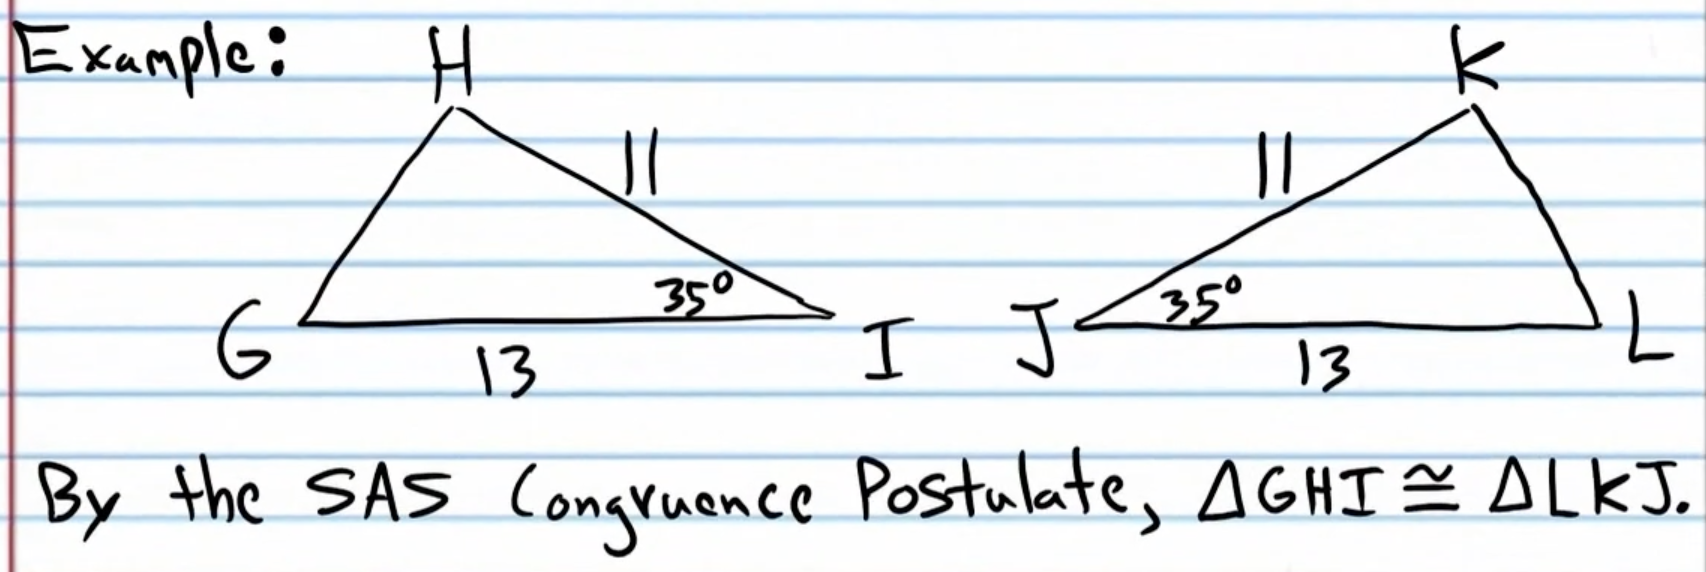 Example:
H K
11 11
35° 35°
G I J L
13 13
By the SAS Congruence Postulate, △GHI ≅ △LKJ.